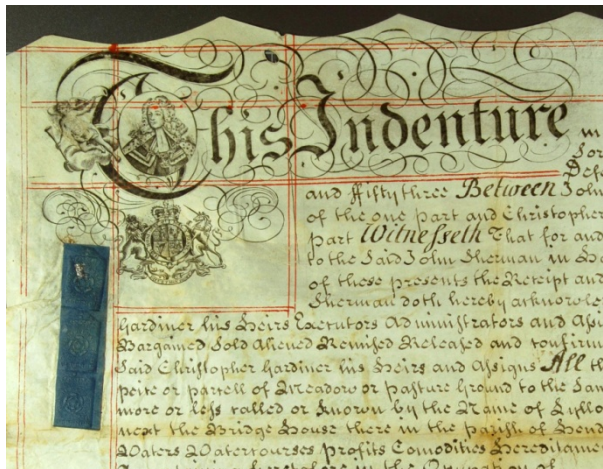 This Indenture m
and ffifty three Between John
of the one part and Christopher
part Witnesseth That for and
to the Said John Sherman in
of these presents the Receipt and
Sherman doth hereby acknowle
Gardiner his Heirs Executors Administrators and Assi
Bargained Sold Aliened Remised Released and confirm
Said Christopher Gardiner his Heirs and Assigns All th
peice or parcell of Meadow or pasture Ground to the Sam
more or less called or known by the Name of
next the Bridge House there in the parish of Hend
Waters Watercourses profits Comodities Hereditame